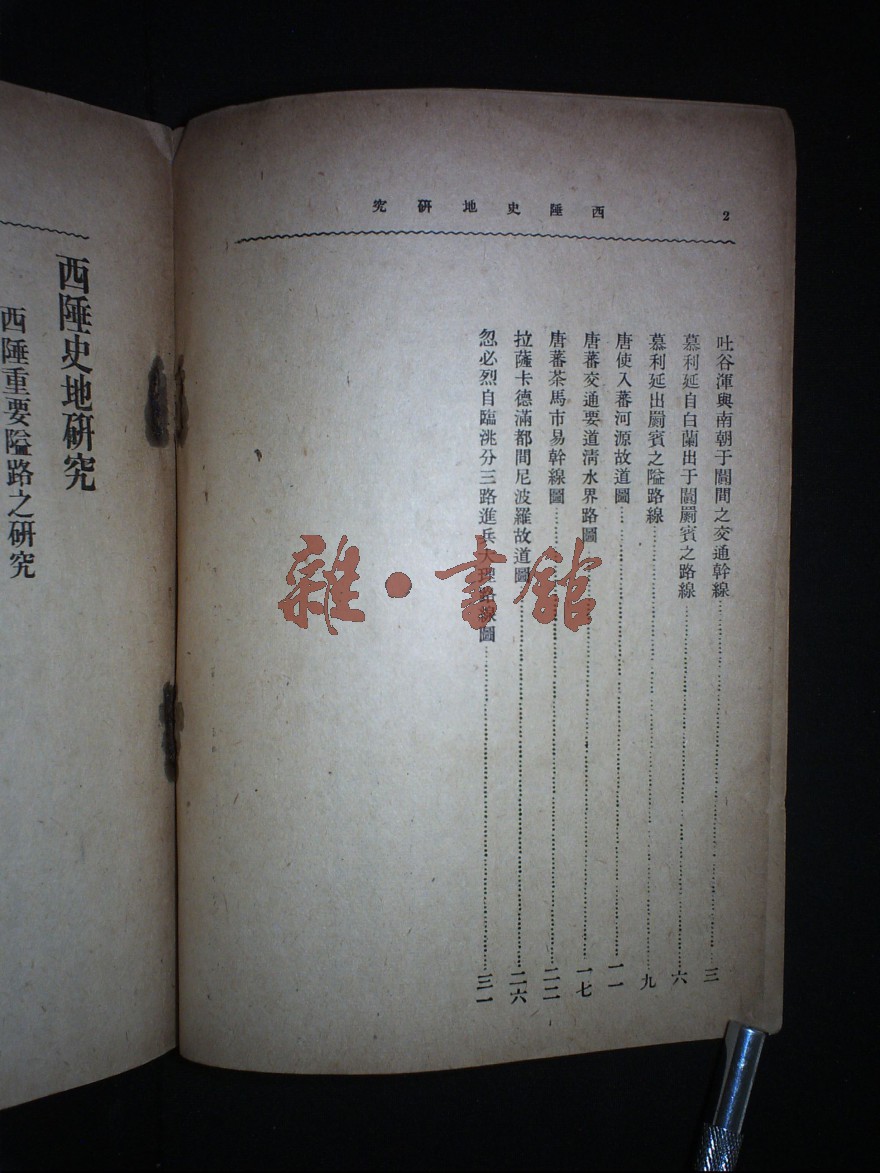 2
西陲史地研究
吐谷渾與南朝于闐間之交通幹線……三
慕利延自白蘭出于闐罽賓之路線……六
慕利延出罽賓之隘路線……九
唐使入蕃河源故道圖……一一
唐蕃交通要道清水界路圖……一七
唐蕃茶馬市易幹線圖……二二
拉薩卡德滿都間尼波羅故道圖……二六
忽必烈自臨洮分三路進兵大理路線圖……三一
雜·書館
西陲史地研究
西陲重要隘路之研究